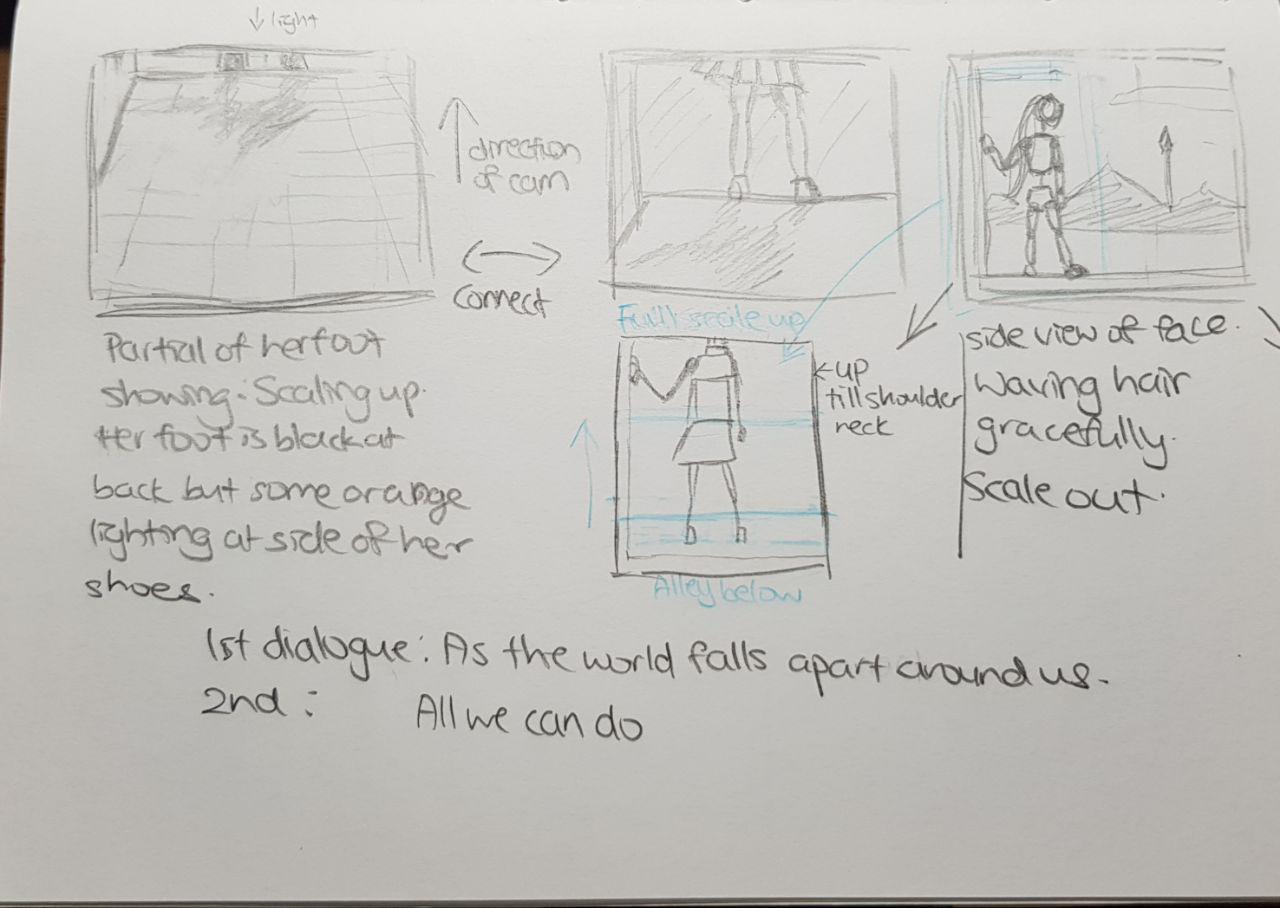 light
direction
of cam
Connect
Partial of her foot
showing. Scaling up.
Her foot is black at
back but some orange
lighting at side of her
shoes.
Full scale up
up
till shoulder
neck
Alley below
side view of face.
Waving hair
gracefully.
Scale out.
1st dialogue: As the world falls apart around us.
2nd : All we can do